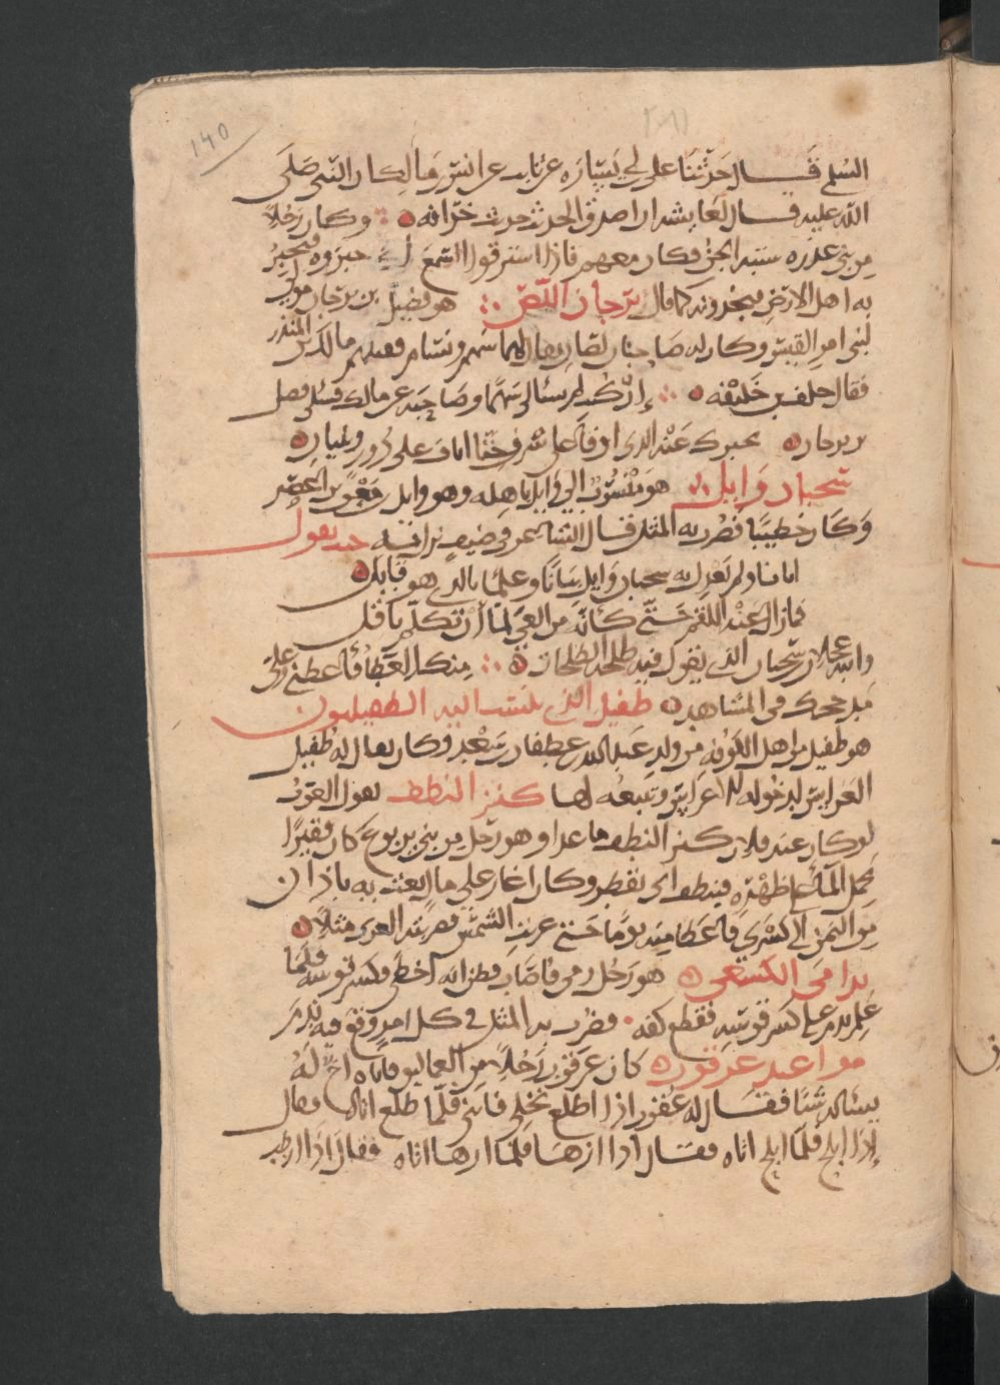 ١٤٥
السلمي قال حدثنا علي بن ابي يسارة عن ثابت عن انس بن مالك ان النبي صلى
الله عليه قال لعايشه ان اصدق الحديث حديث خرافه وكان رجلا
من بني عذره سبته الجن وكان معهم فاذا استرقوا السمع خبروه فيخبر
به اهل الارض فيجدونه كما قال برجان اللص هو فضيل بن برجان مولى
لبني امرء القيس وكان له صاحبان لصان يقال لهما سهم وبسام فقتلهم مالك بن المنذر
فقال خلف بن خليفه ان كنت لم تسالي سهما وصاحبه عن مالك فسلي فضل
بن برجان يخبرك عنه الذي اوفى على شرف حتى اناف على دور وبنيان
سحبان وايل هو منسوب الى وايل باهله وهو وايل بن معن بن اعصر
وكان خطيبا فضرب به المثل قال الشاعر في ضيف نزل به حيث يقول
اتانا ولم يعدله سحبان وايل بيانا وعلما بالذي هو قايل
فما زال عنه اللقم حتى كانه من العي لما ان تكلم باقل
وابنه عجلان بن سحبان الذي يقول فيه طلحة الطلحات منك العطا فاعطني وعلي
مدحك في المشاهد طفيل الذي ينسب اليه الطفيليون
هو طفيل من اهل الكوفه من ولد عبد الله بن غطفان بن سعد وكان يقال له طفيل
العرايس لدخوله الاعراس وتتبعه لها كنز النطف تقول العرب
لو كان عند فلان كنز النطف ما عدا وهو رجل من بني يربوع كان فقيرا
يحمل الماء على ظهره فينطف اي يقطر وكان اغار على مال بعث به باذان
من اليمن الى كسرى فاعطا منه يوما حتى غربت الشمس فضربته العرب مثلا
ندامة الكسعي هو رجل رمى فاصاب فظن انه اخطى فكسر قوسه فلما
علم ندم على كسر قوسه فقطع كفه فضرب به المثل في كل امر وقع فيه ندم
مواعيد عرقوب كان عرقوب رجلا من العماليق فاتاه اخ له
يساله شيا فقال له عرقوب اذا اطلع نخلي فاتني فلما طلع اتاه فقال
اذا ابلح فلما ابلح اتاه فقال اذا ازها فلما ازها اتاه فقال اذا ارطب